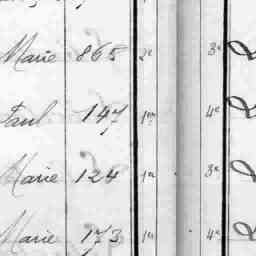 Marie 865 2e 3e
Paul 147 1er 4e
Marie 124 1er 3e
Marie 173 1er 4e